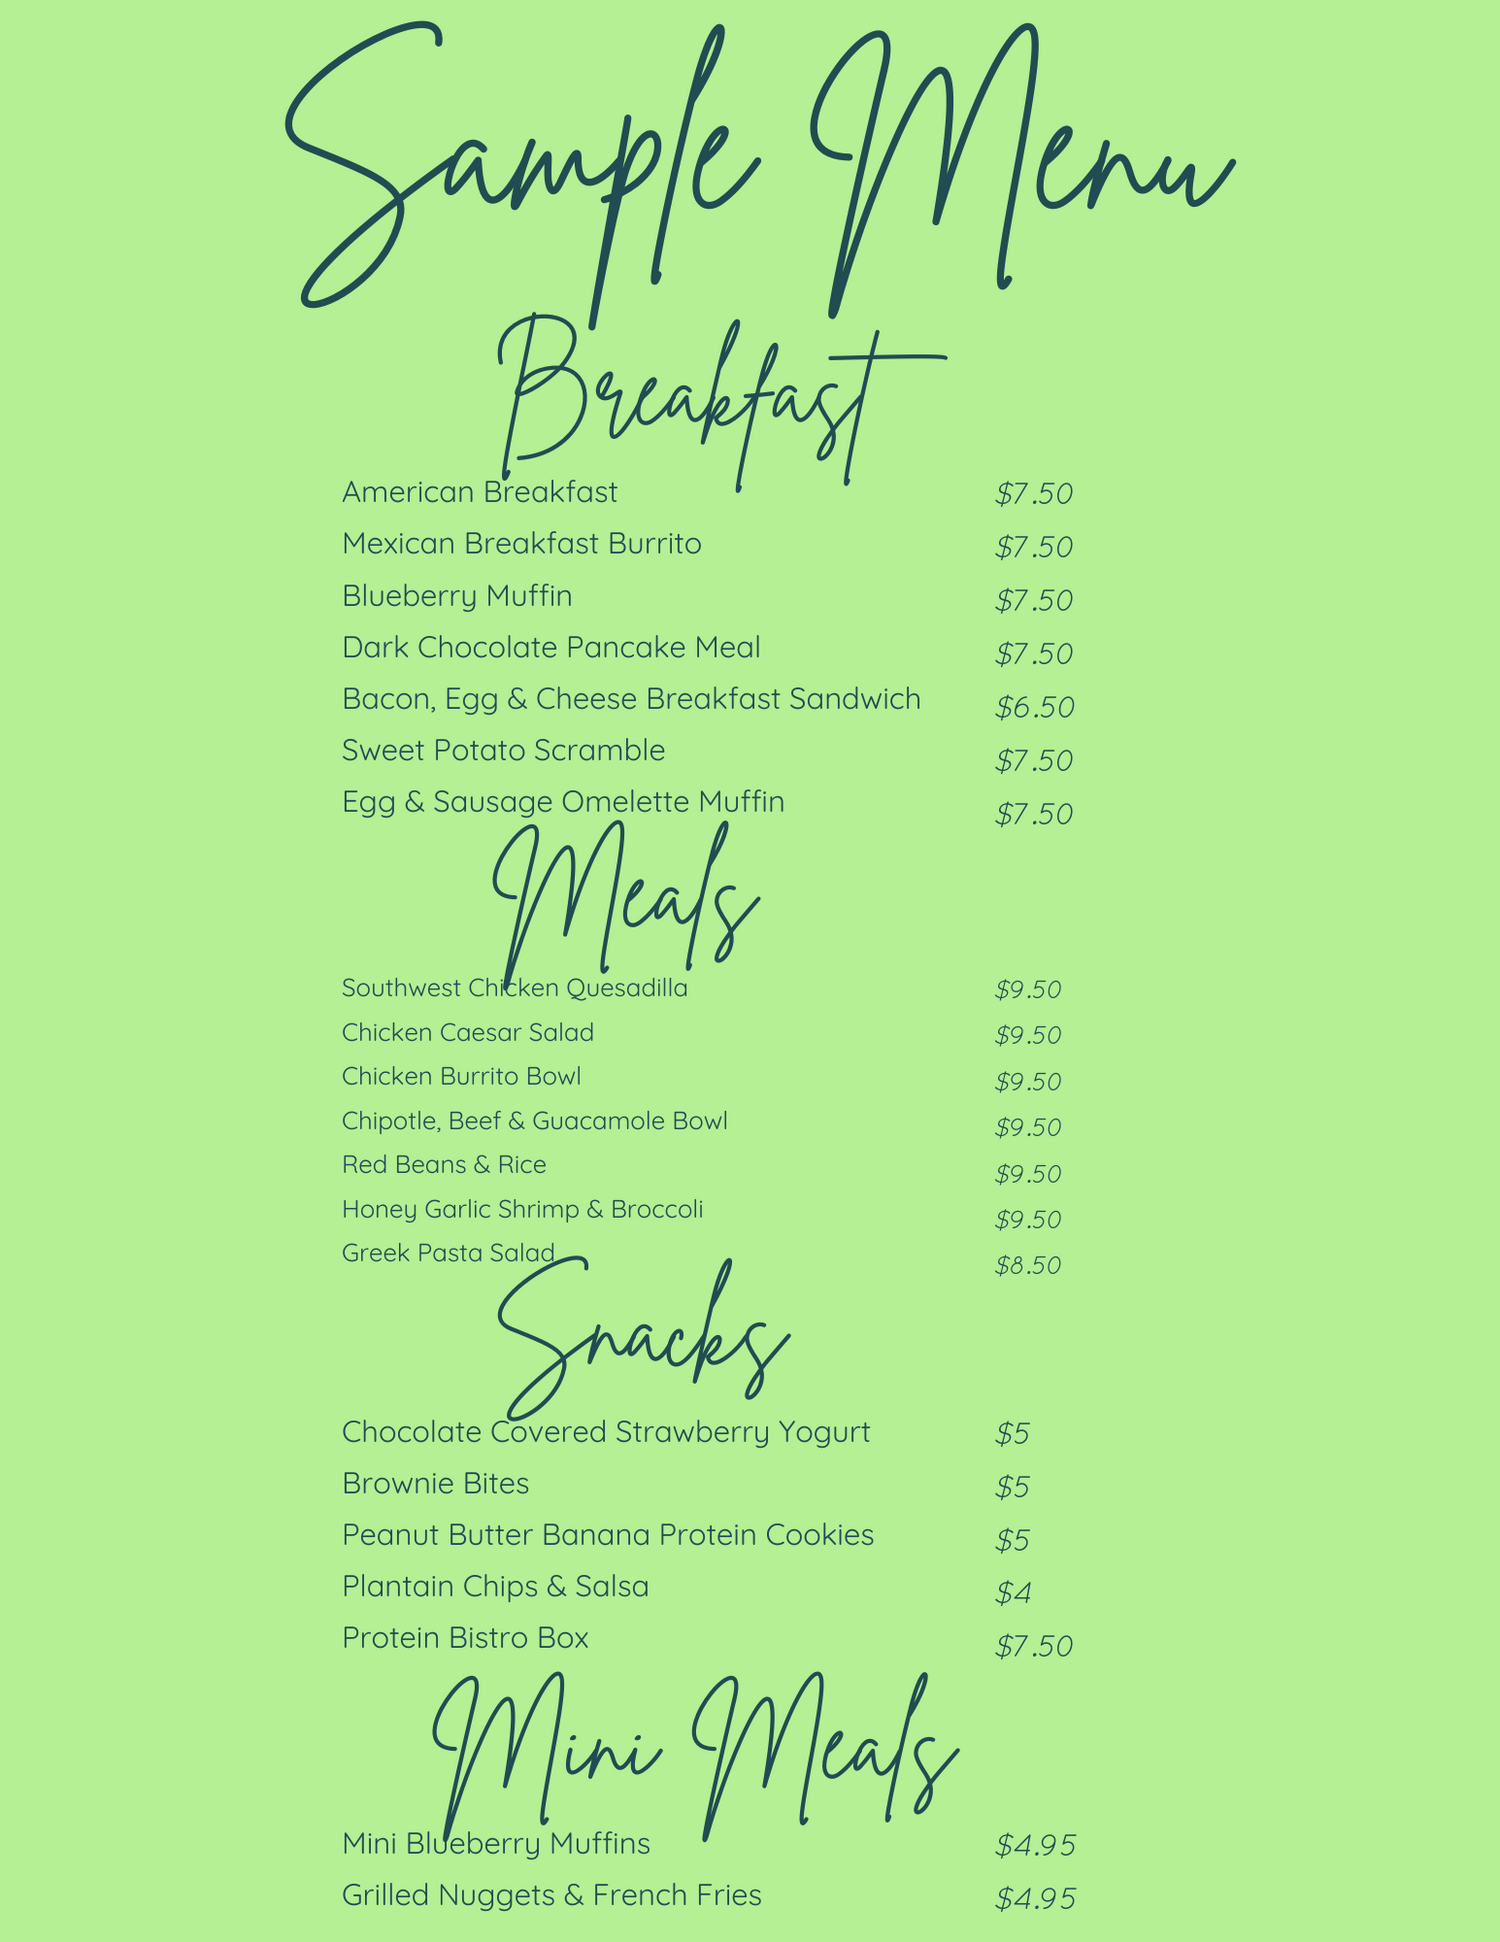 Sample Menu
Breakfast
American Breakfast $7.50
Mexican Breakfast Burrito $7.50
Blueberry Muffin $7.50
Dark Chocolate Pancake Meal $7.50
Bacon, Egg & Cheese Breakfast Sandwich $6.50
Sweet Potato Scramble $7.50
Egg & Sausage Omelette Muffin $7.50
Meals
Southwest Chicken Quesadilla $9.50
Chicken Caesar Salad $9.50
Chicken Burrito Bowl $9.50
Chipotle, Beef & Guacamole Bowl $9.50
Red Beans & Rice $9.50
Honey Garlic Shrimp & Broccoli $9.50
Greek Pasta Salad $8.50
Snacks
Chocolate Covered Strawberry Yogurt $5
Brownie Bites $5
Peanut Butter Banana Protein Cookies $5
Plantain Chips & Salsa $4
Protein Bistro Box $7.50
Mini Meals
Mini Blueberry Muffins $4.95
Grilled Nuggets & French Fries $4.95